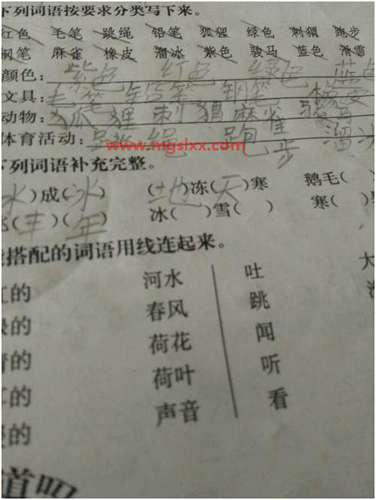 下列词语按要求分类写下来。
红色 毛笔 跳绳 铅笔 狐狸 绿色 刺猬 跑步
钢笔 麻雀 橡皮 溜冰 紫色 骏马 蓝色 滑雪
颜色：紫色 红色 绿色 蓝色
文具：毛笔 铅笔 钢笔 橡皮
动物：狐狸 刺猬 麻雀
体育活动：跳绳 跑步 溜冰
www.mgslxx.com
下列词语补充完整。
(水)成(冰) (地)冻(天)寒 鹅毛(
(丰)(年) 冰( )雪( ) 寒(
搭配的词语用线连起来。
的 河水 吐
的 春风 跳
的 荷花 闻
的 荷叶 听
的 声音 看
道吗